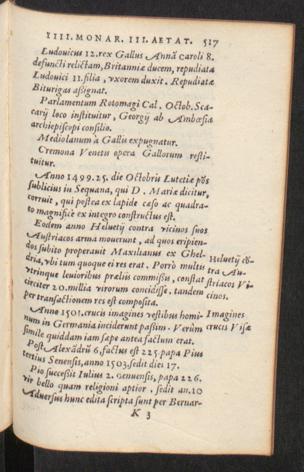 IIII. MONAR. III. AETAT. 517
Ludouicus 12. rex Gallus Annā Caroli 8.
defuncti relictam, Britanniæ ducem, repudiata
Ludouici 11. filia, vxorem duxit. Repudiatæ
Biturigas aßignat.
Parlamentum Rotomagi Cal. Octob. Sca-
carij loco instituitur, Georgij ab Ambœsia
archiepiscopi consilio.
Mediolanum à Gallis expugnatur.
Cremona Venetis opera Gallorum resti-
tuitur.
Anno 1499. 25. die Octobris Lutetiæ pōs
sublicius in Sequana, qui D. Mariæ dicitur,
corruit, qui postea ex lapide cæso ac quadra-
to magnificè ex integro constructus est.
Eodem anno Heluetij contra vicinos suos
Austriacos arma mouerunt, ad quos eripien-
dos subito properauit Maxilianus ex Ghel-
dria, vbi tum quoque ei res erat. Porrò multis
vtrinque leuioribus præliis commißis, constat
circiter 20. millia virorum concidisse. tandem
per transactionem res est composita.
Heluetij cō-
tra Au-
striacos Vi-
cinos.
Anno 1501. crucis imagines vestibus homi-
num in Germania inciderunt paßim. Verùm
simile quiddam iam sæpe antea factum erat.
Imagines
crucis Visæ
Post Alexādrū 6. factus est 225. papa Pius
tertius Senensis, anno 1503. sedit dies 17.
Pio succeßit Iulius 2. Genuensis, papa 226.
vir bello quam religioni aptior. sedit an. 10
Aduersus hunc edita scripta sunt per Bernar-
K 3